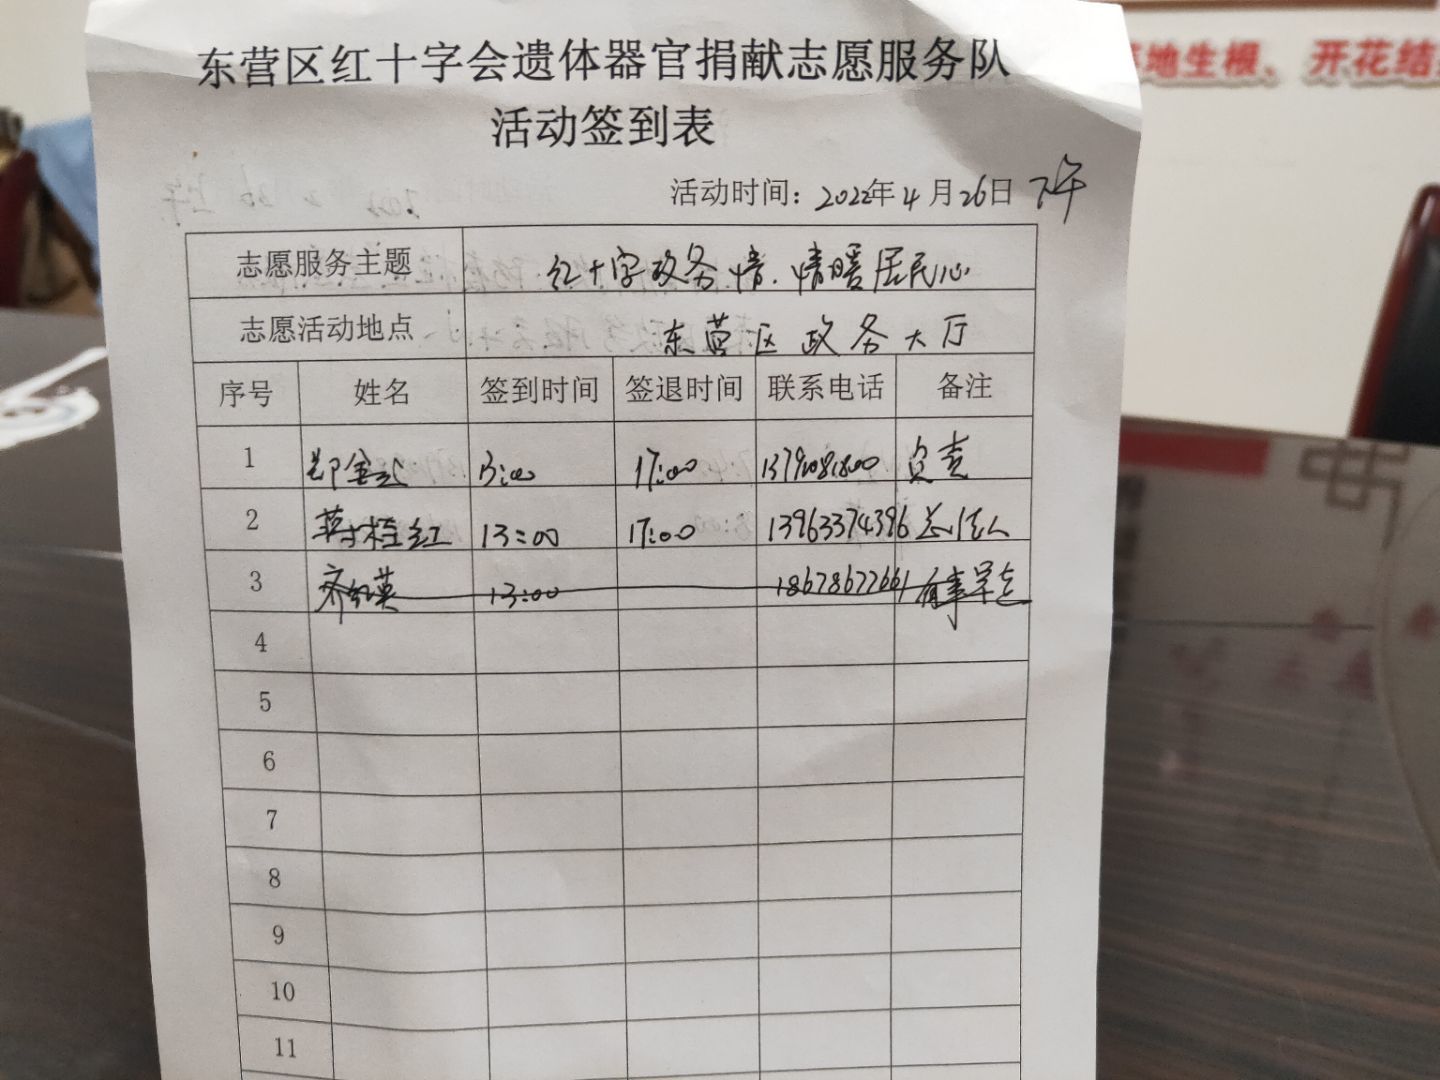 东营区红十字会遗体器官捐献志愿服务队
活动签到表
活动时间：2022年4月26日 下午
志愿服务主题 红十字政务情.情暖居民心
志愿活动地点 东营区政务大厅
序号 姓名 签到时间 签退时间 联系电话 备注
1 13:00 17:00 负责
2 红 13:00 17:00 13963374396
3 齐红英 13:00 18678677661 有事早走
4
5
6
7
8
9
10
11
落地生根、开花结